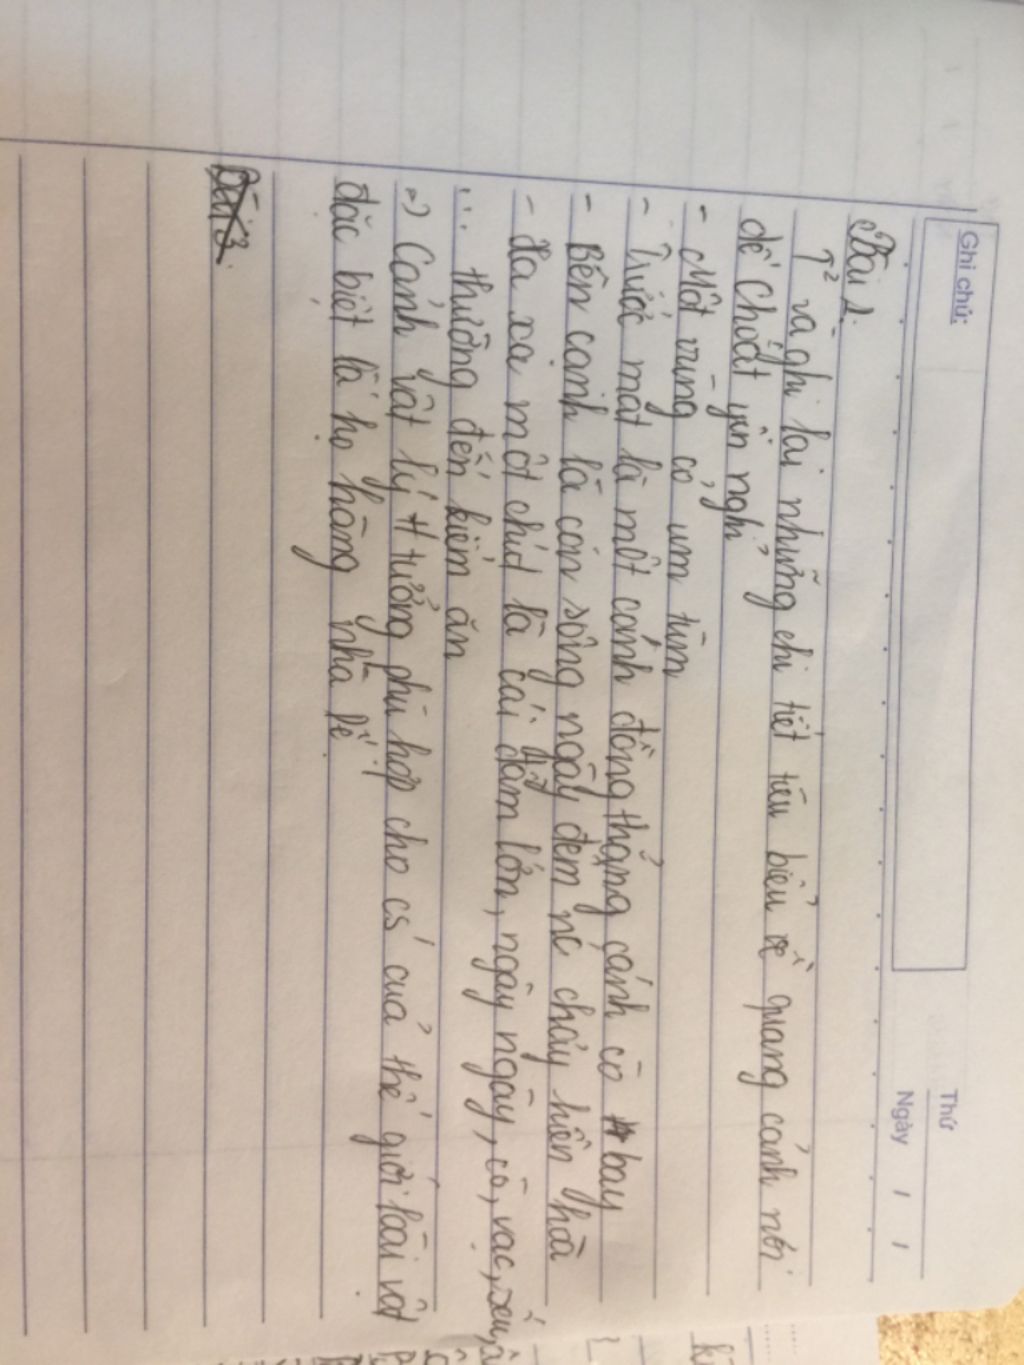 Ghi chú:
Thứ
Ngày / /
Bài 2.
T² và ghi lại những chi tiết tiêu biểu về quang cảnh nơi
dế Choắt yên nghỉ
- Một vùng cỏ um tùm
- Trước mặt là một cánh đồng thẳng cánh cò bay
- Bên cạnh là con sông ngày đêm nc chảy hiền hoà
- Xa xa một chút là cái đầm lớn, ngày ngày, cò, vạc, sếu,
... thường đến kiếm ăn
=> Cảnh vật lý tưởng phù hợp cho cs của thế giới loài vật
đặc biệt là họ hàng nhà Dế.
Bài 3.